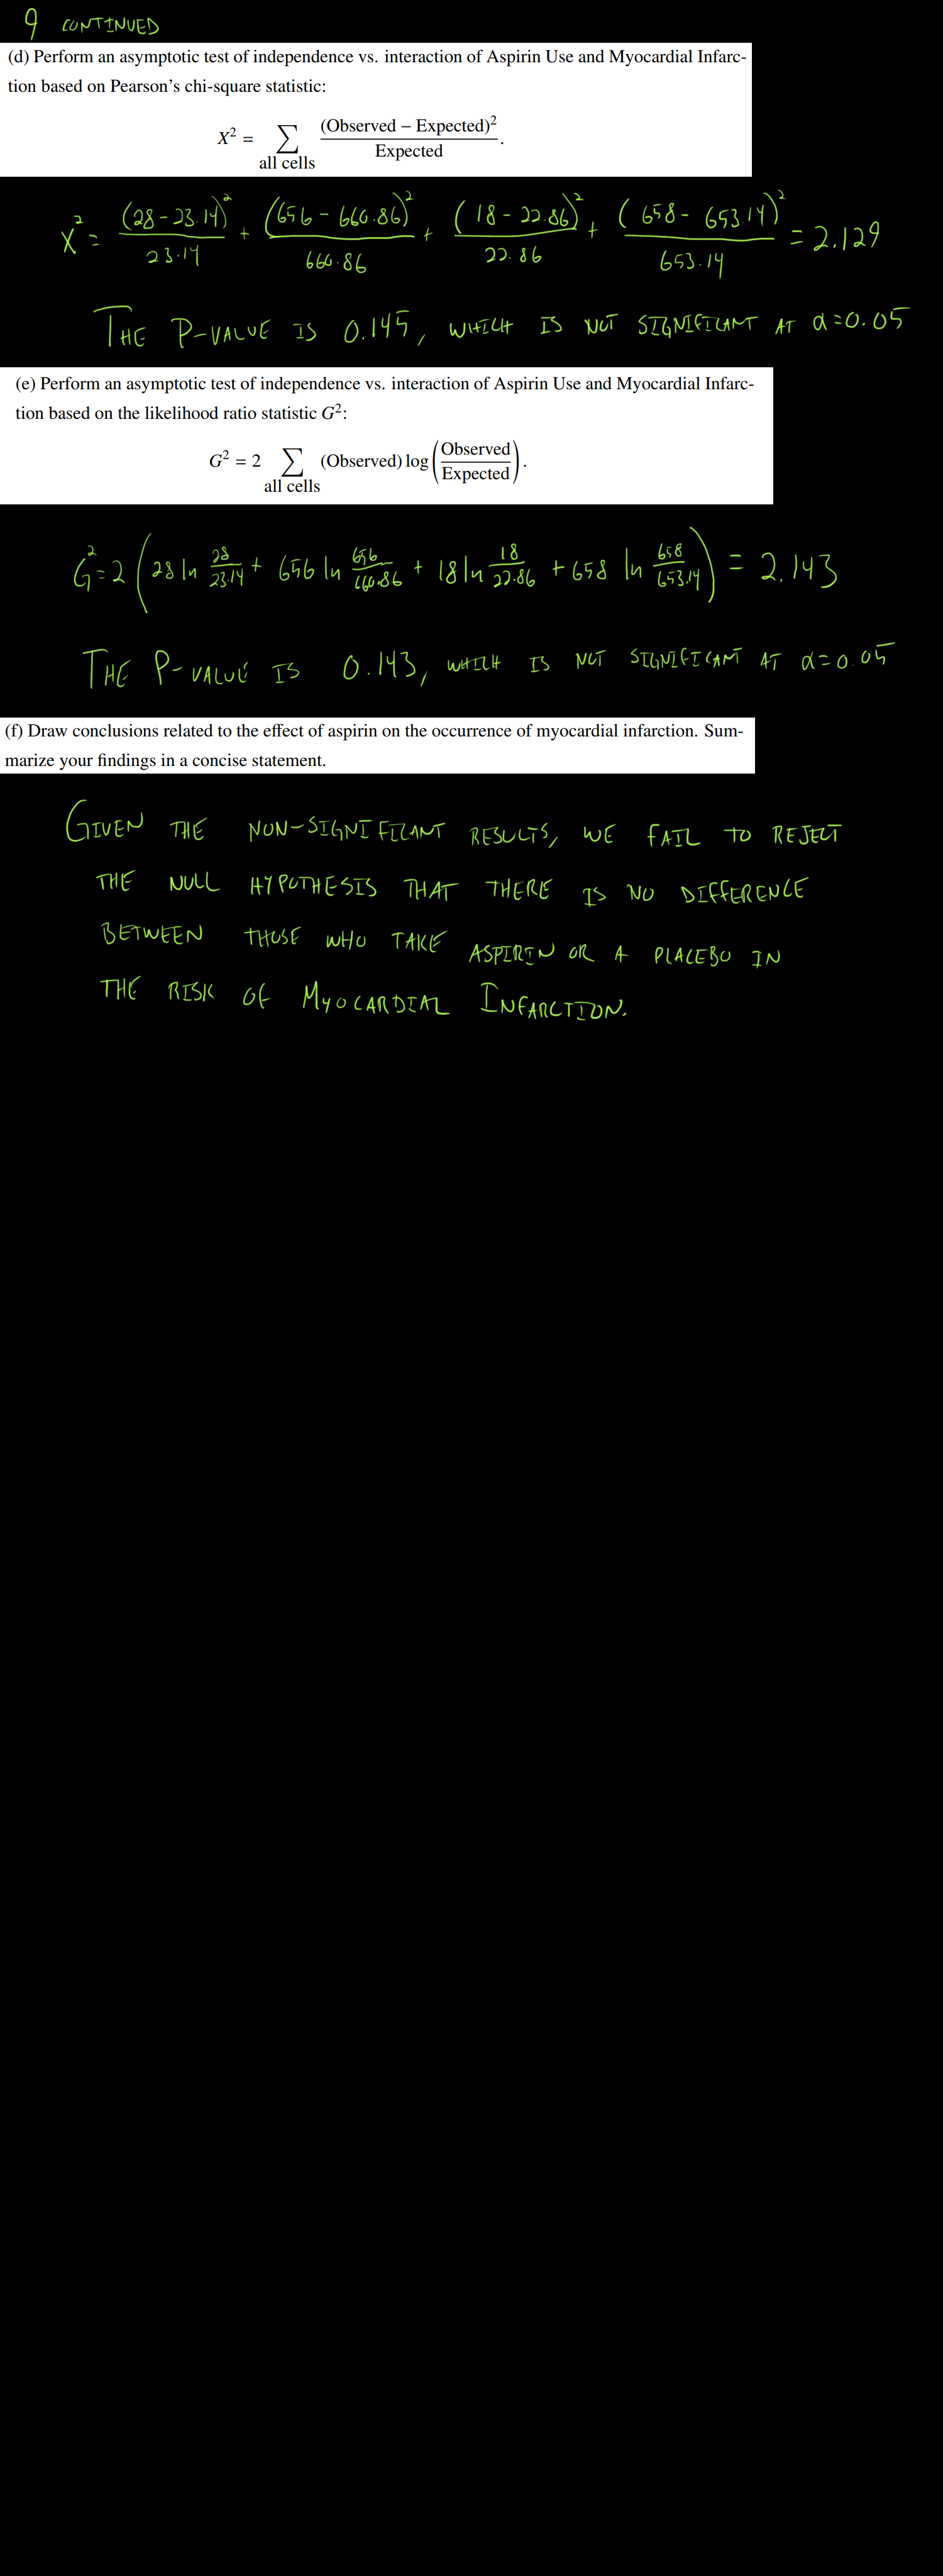 9 CONTINUED
(d) Perform an asymptotic test of independence vs. interaction of Aspirin Use and Myocardial Infarc-
tion based on Pearson's chi-square statistic:
X² = ∑ all cells (Observed − Expected)² / Expected .
X² = (28 - 23.14)² / 23.14 + (656 - 660.86)² / 660.86 + (18 - 22.86)² / 22.86 + (658 - 653.14)² / 653.14 = 2.129
THE P-VALUE IS 0.145, WHICH IS NOT SIGNIFICANT AT α=0.05
(e) Perform an asymptotic test of independence vs. interaction of Aspirin Use and Myocardial Infarc-
tion based on the likelihood ratio statistic G²:
G² = 2 ∑ all cells (Observed) log (Observed / Expected) .
G² = 2 (28 ln 28/23.14 + 656 ln 656/660.86 + 18 ln 18/22.86 + 658 ln 658/653.14) = 2.143
THE P-VALUE IS 0.143, WHICH IS NOT SIGNIFICANT AT α=0.05
(f) Draw conclusions related to the effect of aspirin on the occurrence of myocardial infarction. Sum-
marize your findings in a concise statement.
GIVEN THE NON-SIGNIFICANT RESULTS, WE FAIL TO REJECT
THE NULL HYPOTHESIS THAT THERE IS NO DIFFERENCE
BETWEEN THOSE WHO TAKE ASPIRIN OR A PLACEBO IN
THE RISK OF MYOCARDIAL INFARCTION.